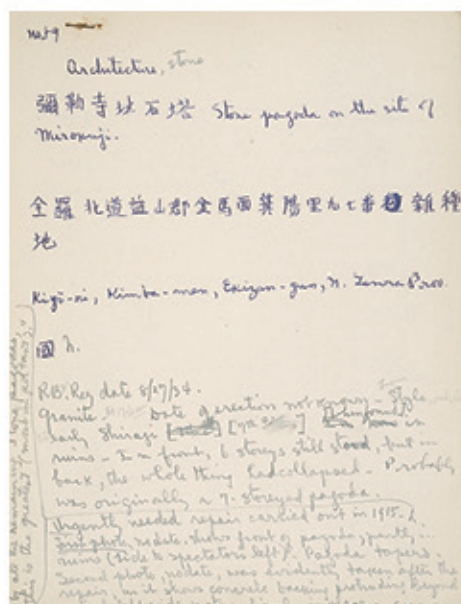 no 59
Architecture, stone
彌勒寺址石塔 Stone pagoda on the site of
Mirokuji.
全羅北道益山郡金馬面箕陽里九七番 雜種
地
Kigi-ri, Kimba-men, Ekizan-gun, N. Zenra Prov.
國 N.
R.B. Reg date 8/27/34.
Granite. Date of erection not known - Style
early Shiragi in
ruins - In front, 6 storeys still stood, but in
back, the whole thing had collapsed - Probably
was originally a 7-storeyed pagoda.
Urgently needed repair carried out in 1915.
First photo, nodate, shows front of pagoda, partly
ruins (side to spectators left). Pagoda tapers.
Second photo, nodate, was evidently taken after the
repair, as it shows concrete backing protruding beyond
of all the remaining stone pagodas,
this is the greatest &